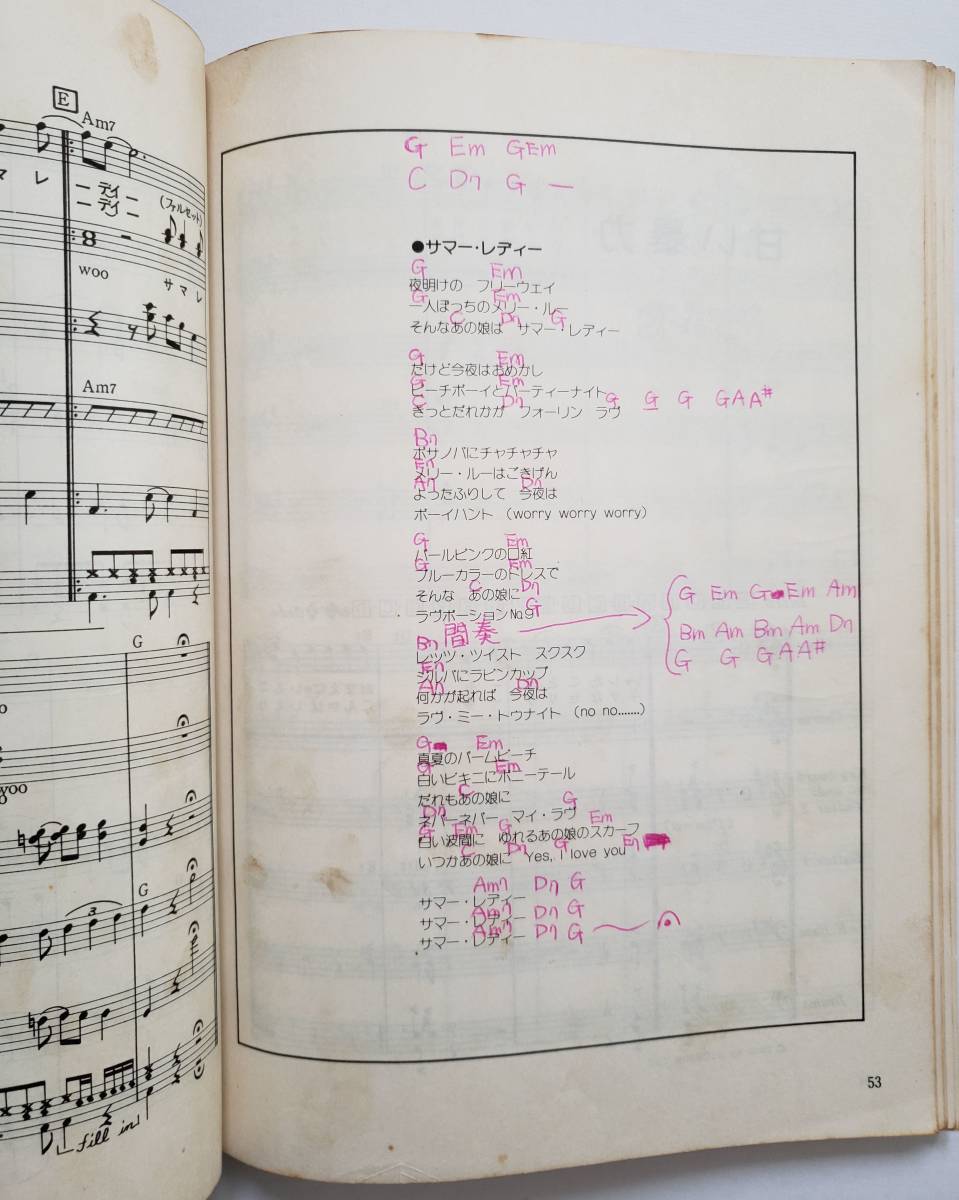 E
Am7
マ レ
ー デイ ー
ー デイ ー
(ファルセット)
8
woo
サ マ レ
Am7
G
woo
G
3
fill in
G Em GEm
C D7 G —
●サマー・レディー
G Em
夜明けの フリーウェイ
G Em
一人ぼっちのメリー・ルー
C D7 G
そんなあの娘は サマー・レディー
G Em
だけど今夜はおめかし
G Em
ビーチボーイとパーティーナイト
C D7 G G G GAA#
きっとだれかが フォーリン ラヴ
B7
ボサノバにチャチャチャ
E7
メリー・ルーはごきげん
A7 D7
よったふりして 今夜は
ボーイハント (worry worry worry)
G Em
パールピンクの口紅
G Em
ブルーカラーのドレスで
C D7
そんな あの娘に
G
ラヴポーションNo.9
B7 間奏
G Em G Em Am
Bm Am Bm Am D7
G G GAA#
レッツ・ツイスト スクスク
E7
ジルバにラビンカップ
A7 D7
何かが起れば 今夜は
ラヴ・ミー・トゥナイト (no no.......)
G Em
真夏のパームビーチ
G Em
白いビキニにポニーテール
C
だれもあの娘に
D7 G
ネバーネバー マイ・ラヴ
G Em G Em
白い波間に ゆれるあの娘のスカーフ
C D7 G E7
いつかあの娘に Yes, I love you
Am7 D7 G
サマー・レディー
Am7 D7 G
サマー・レディー
Am7 D7 G
サマー・レディー
53